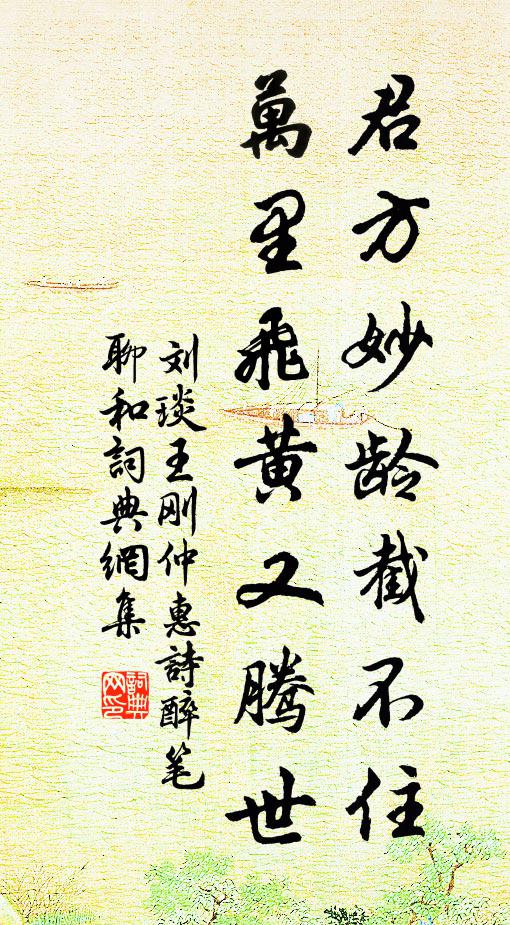 君方妙龄截不住
萬里飛黄又腾世
刘琰王刚仲惠詩醉笔
聊和詞典網集
詞典网印